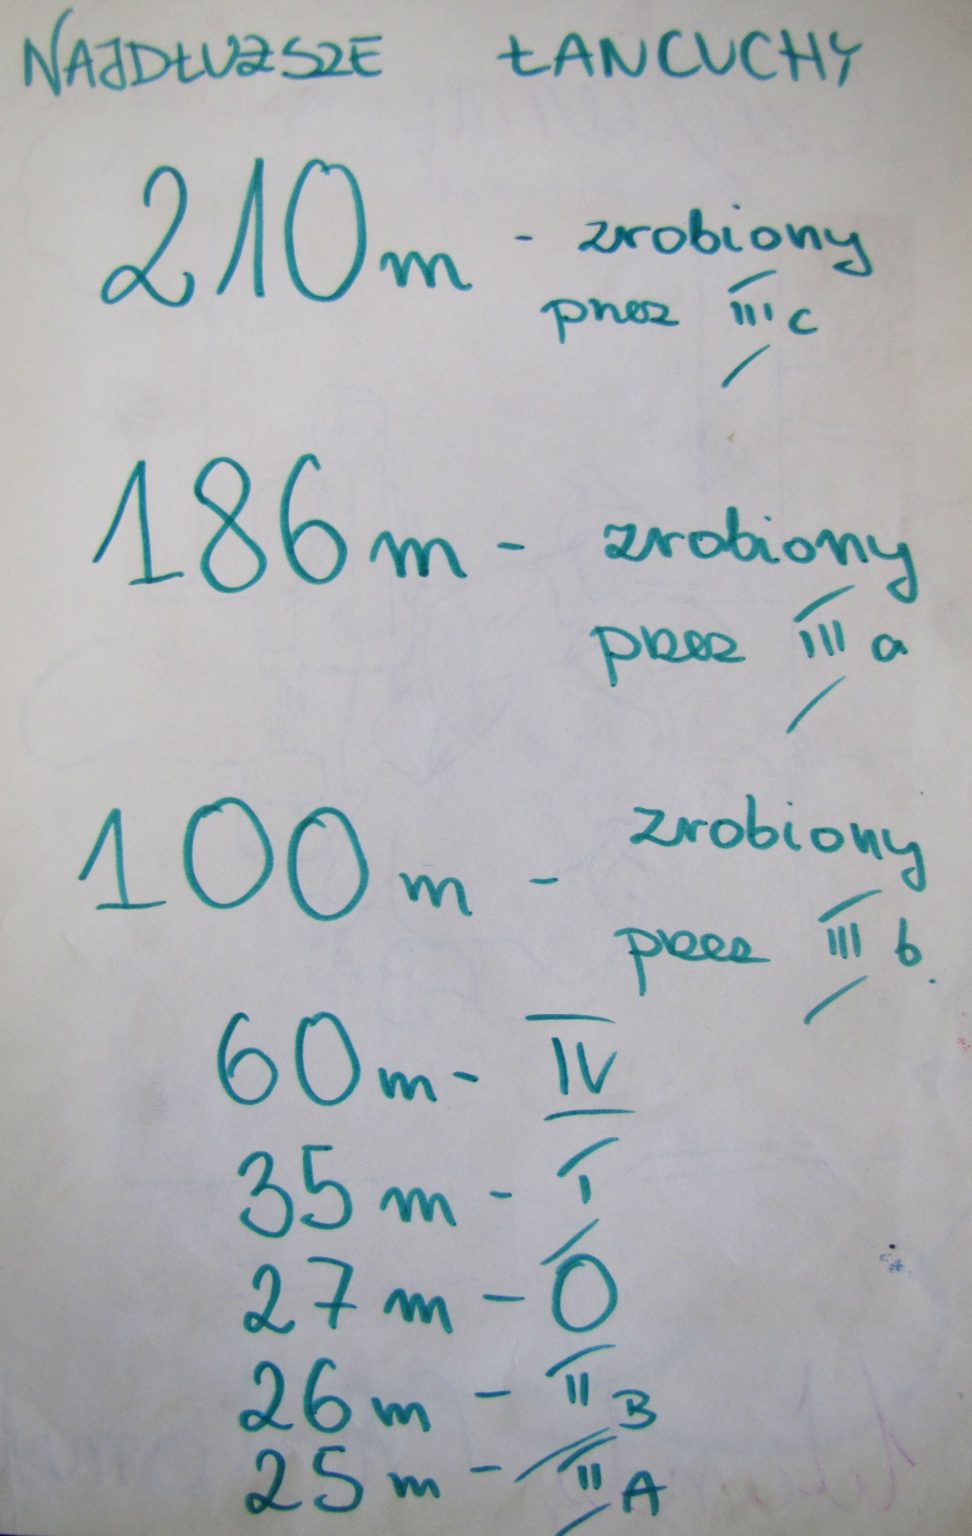 NAJDŁUŻSZE ŁAŃCUCHY
210 m - zrobiony
przez III c
186 m - zrobiony
przez III a
100 m - zrobiony
przez III b.
60 m - IV
35 m - I
27 m - O
26 m - II B
25 m - II A